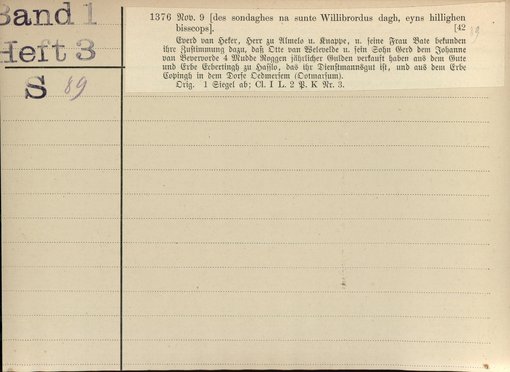 Band 1
Heft 3
S 89
1376 Nov. 9 [des sondaghes na sunte Willibrordus dagh, eyns hillighen
bisscops]. [42
Everd van Heker, Herr zu Almelo u. Knappe, u. seine Frau Bate bekunden
ihre Zustimmung dazu, daß Otte van Welevelde u. sein Sohn Gerd dem Johanne
van Bevervorde 4 Mudde Roggen jährlicher Gulden verkauft haben aus dem Gute
und Erbe Erbertingh zu Hasslo, das ihr Dienstmannsgut ist, und aus dem Erbe
Copingh in dem Dorfe Oedmersem (Ootmarsum).
Orig. 1 Siegel ab; Cl. I L. 2 P. K Nr. 3.